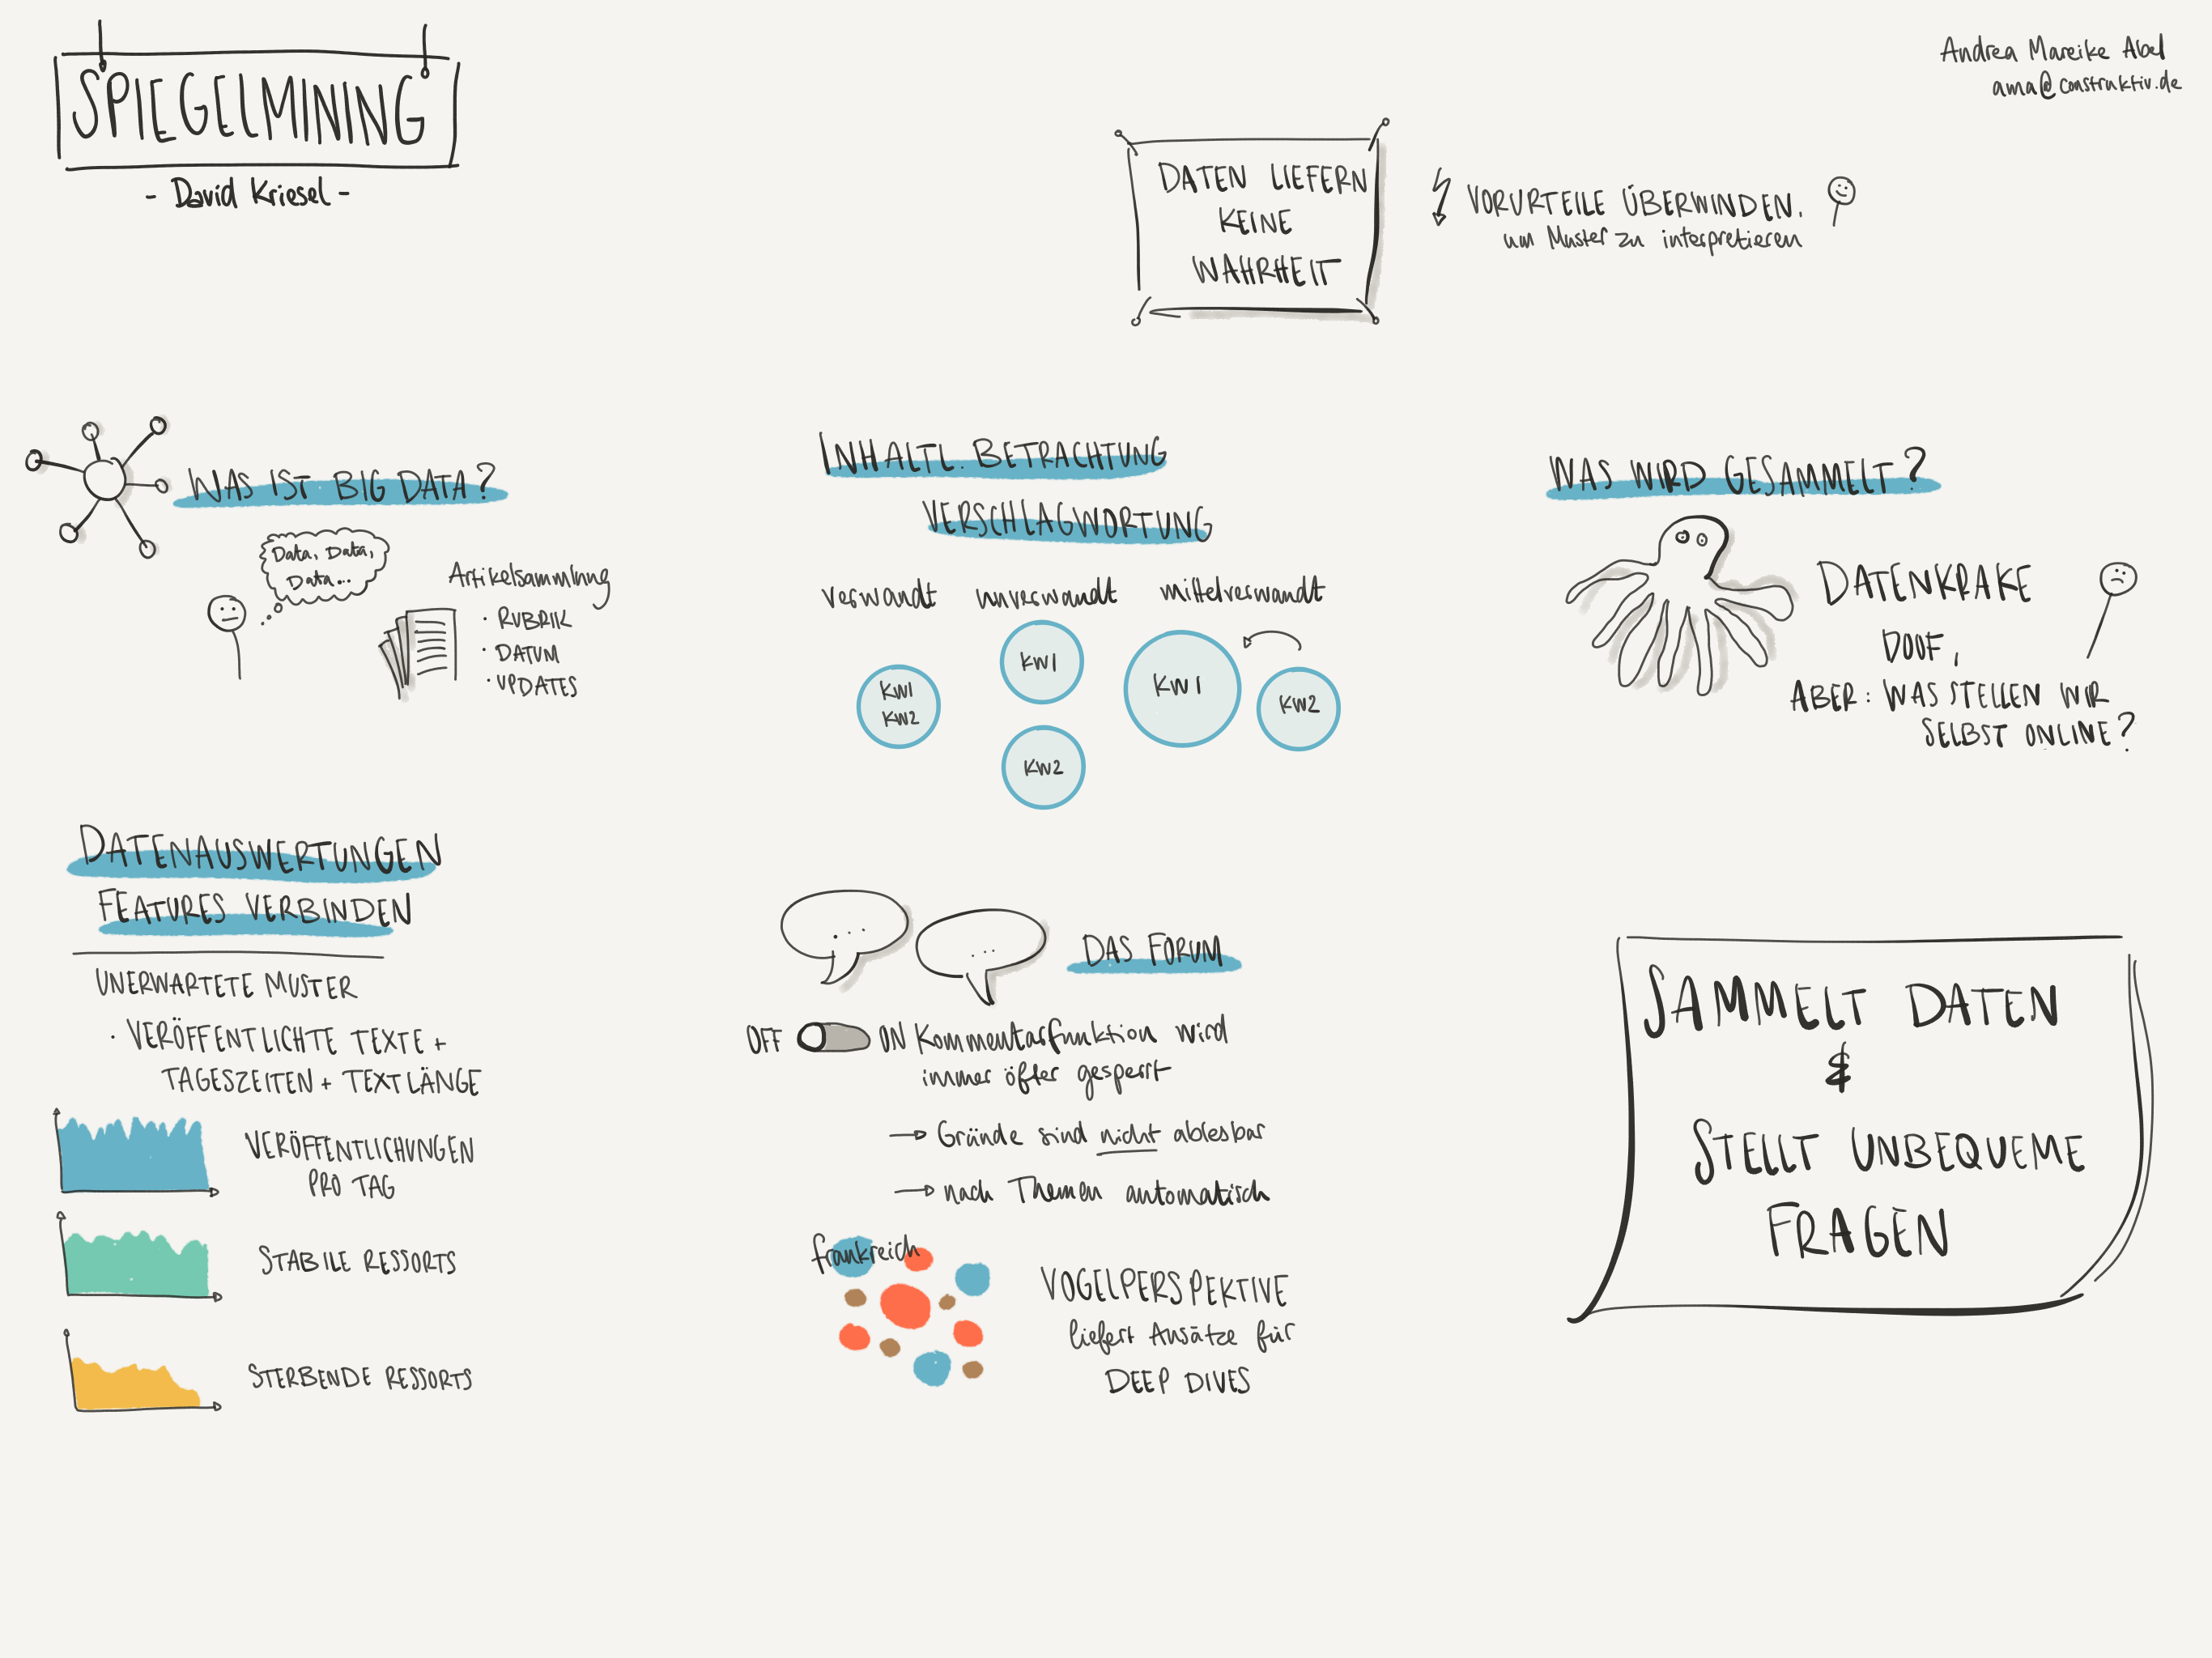 SPIEGELMINING
- David Kriesel -
Andrea Mareike Abel
ama@construktiv.de
DATEN LIEFERN
KEINE
WAHRHEIT
VORURTEILE ÜBERWINDEN,
um Muster zu interpretieren
WAS IST BIG DATA?
Data, Data,
Data...
Artikelsammlung
· RUBRIK
· DATUM
· UPDATES
INHALTL. BETRACHTUNG
VERSCHLAGWORTUNG
verwandt unverwandt mittelverwandt
KW1
KW2
KW1
KW2
KW1
KW2
WAS WIRD GESAMMELT?
DATENKRAKE
DOOF,
ABER: WAS STELLEN WIR
SELBST ONLINE?
DATENAUSWERTUNGEN
FEATURES VERBINDEN
UNERWARTETE MUSTER
· VERÖFFENTLICHTE TEXTE +
TAGESZEITEN + TEXTLÄNGE
VERÖFFENTLICHUNGEN
PRO TAG
STABILE RESSORTS
STERBENDE RESSORTS
DAS FORUM
OFF ON Kommentarfunktion wird
immer öfter gesperrt
→ Gründe sind nicht ablesbar
→ nach Themen automatisch
frankreich
VOGELPERSPEKTIVE
liefert Ansätze für
DEEP DIVES
SAMMELT DATEN
&
STELLT UNBEQUEME
FRAGEN